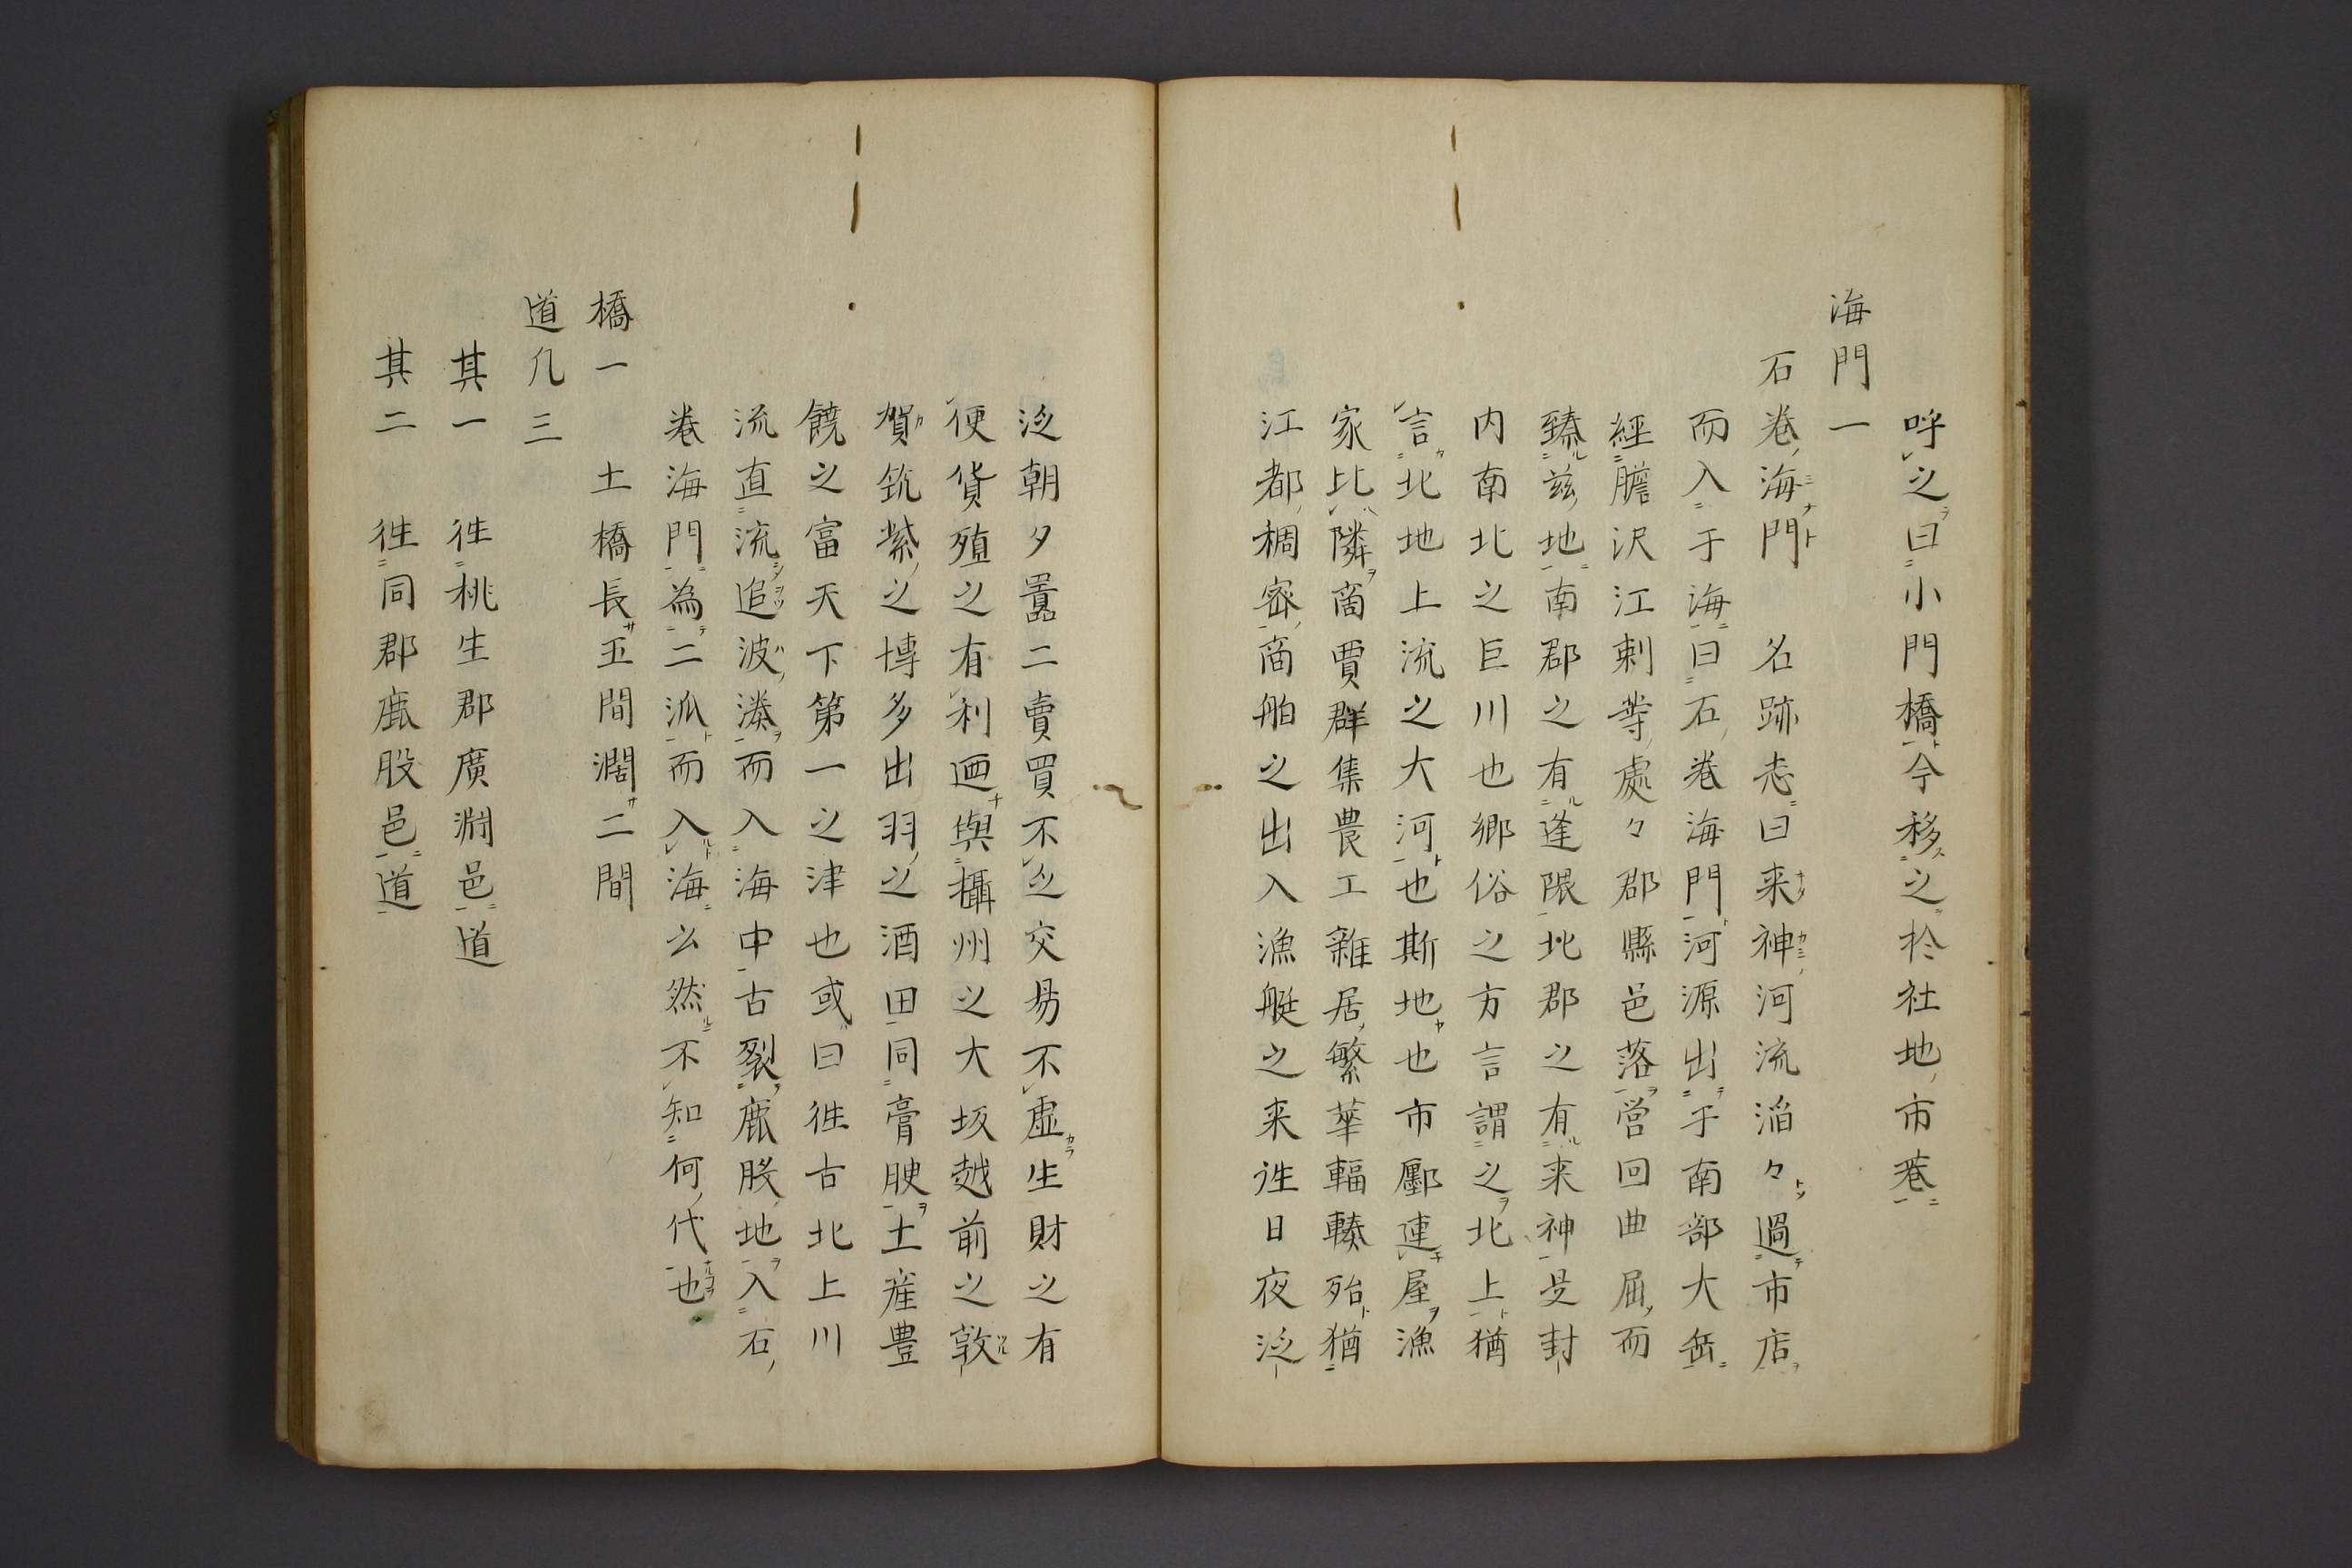 呼之曰小門橋今移之於社地市巷
海門一
石巻海門　名跡志曰来神河流滔々過市店
而入于海曰石巻海門河源出于南部大岳
經膽沢江刺等處々郡縣邑落営回曲屈而
臻茲地南郡之有逢隈北郡之有来神是封
内南北之巨川也郷俗之方言謂之北上猶
言北地上流之大河也斯地也市鄽連屋漁
家比隣商賈群集農工雜居繁華輻輳殆猶
江都稠密商舶之出入漁艇之来徃日夜泛
泛朝夕囂二賣買不亡交易不虚生財之有
便貨殖之有利廼與攝州之大坂越前之敦
賀筑紫之博多出羽之酒田同膏腴土産豊
饒之富天下第一之津也或曰徃古北上川
流直流追波湊而入海中古裂鹿股地入石
巻海門為二派而入海云然不知何代也
橋一　土橋長五間濶二間
道凡三
其一　徃桃生郡廣淵邑道
其二　徃同郡鹿股邑道